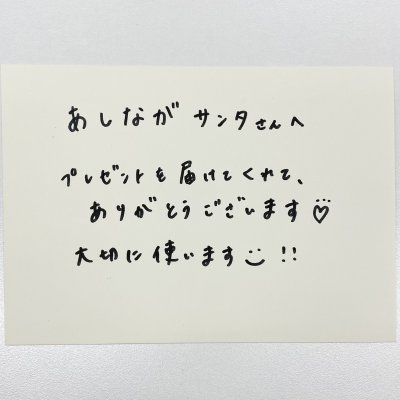 あしながサンタさんへ
プレゼントを届けてくれて、
ありがとうございます♡
大切に使います!!